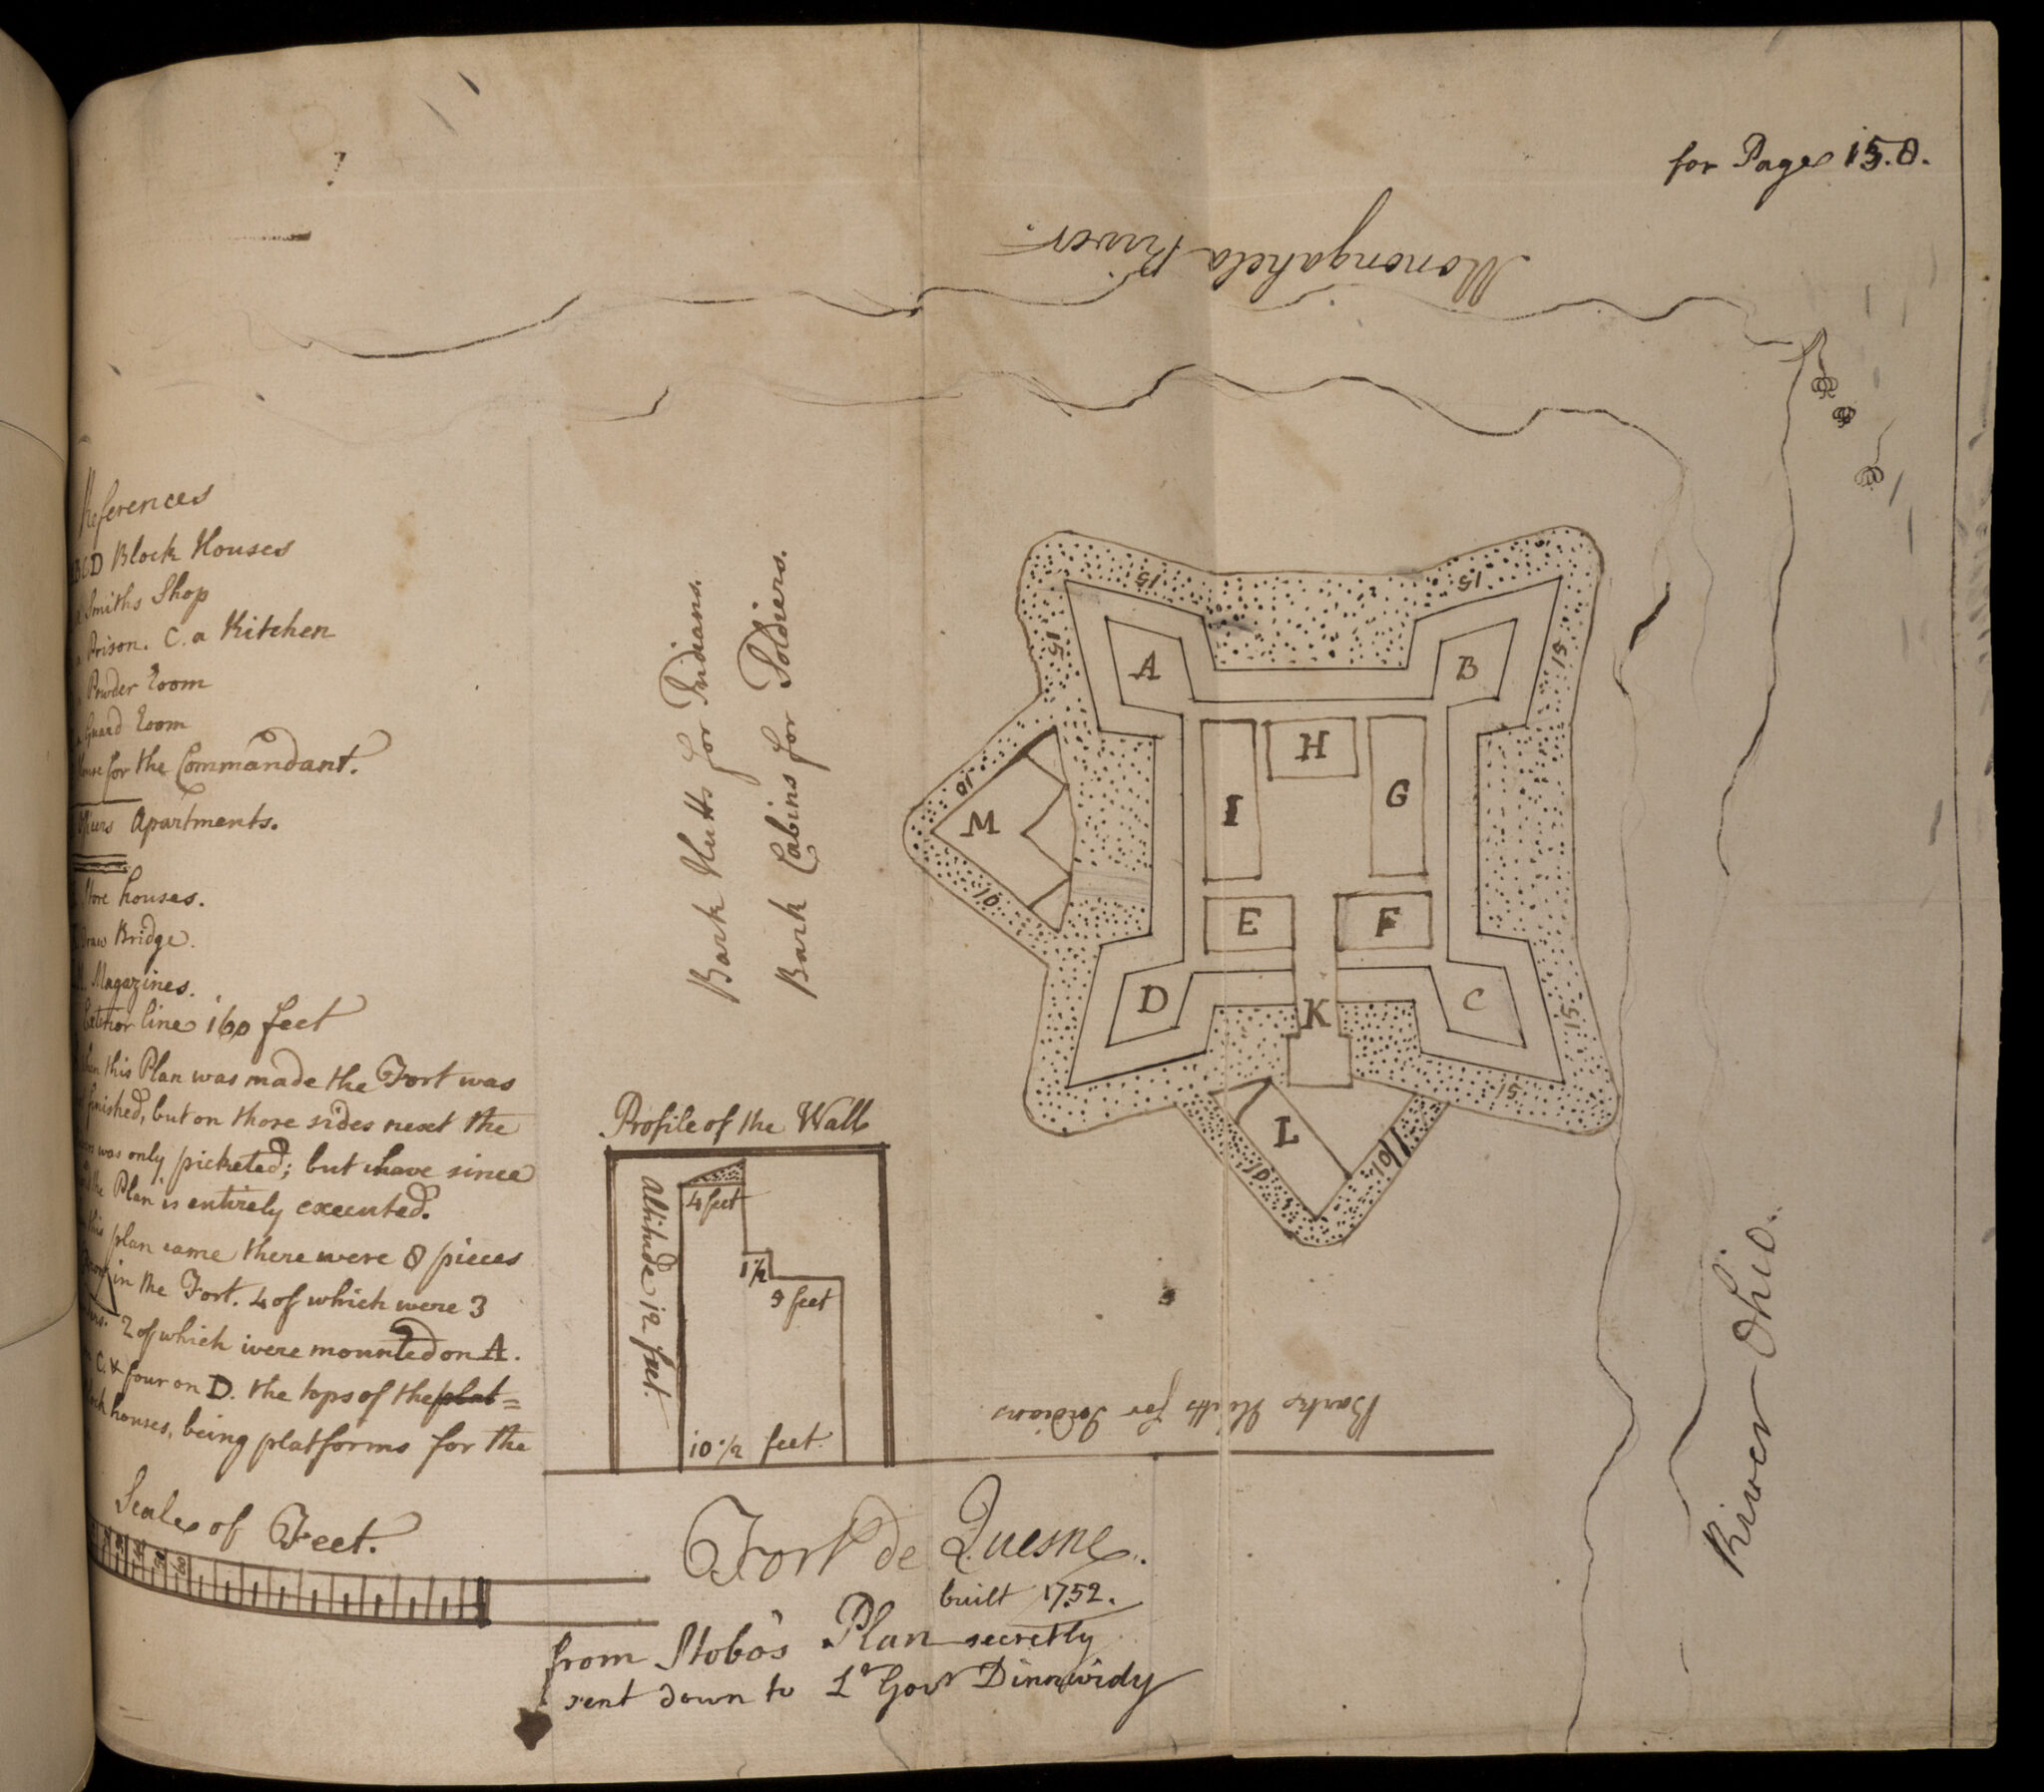 for Page 158.
Monongahela River.
References
BCD Block Houses
a Smiths Shop
Prison. C. a Kitchen
Powder Room
Guard Room
House for the Commandant.
Officers Apartments.
Store houses.
Draw Bridge.
Magazines.
Exterior line 160 feet
When this Plan was made the Fort was
finished, but on those sides next the
was only picketed; but have since
the Plan is entirely executed.
this plan came there were 8 pieces
in the Fort. 4 of which were 3
2 of which were mounted on A.
C. & four on D. the tops of the plat=
houses, being platforms for the
Scale of Feet.
Bark Hutts for Indians.
Bark Cabins for Soldiers.
15
15
15
15
A
B
H
I
G
M
10
10
E
F
D
K
C
15
15
L
10
10
Profile of the Wall
4 feet
1½
9 feet
Altitude 12 feet.
10½ feet
Barks Hutts for Indians
River Ohio.
Fort de Quesne.
built 1752.
from Stobo's Plan secretly
sent down to Lt Govr Dinnwidy